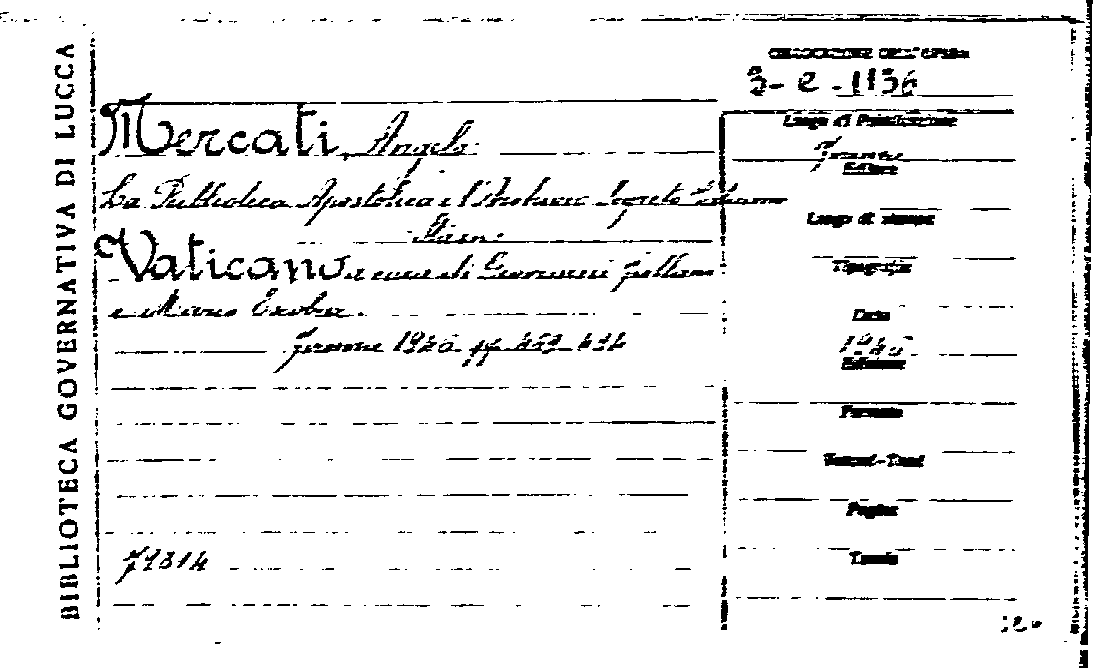 BIBLIOTECA GOVERNATIVA DI LUCCA
COLLOCAZIONE DELL'OPERA
3-e-1136
Mercati, Angelo.
La Biblioteca Apostolica e l'Archivio Segreto Vaticano
In:
Vaticano a cura di Giovanni Fallani
e Mario Escobar.
Firenze 1946 pp.
Luogo di Pubblicazione
Firenze
Editore
Luogo di stampa
Tipografia
Data
1946
Edizione
Formato
Volumi-Tomi
Pagine
Tavole